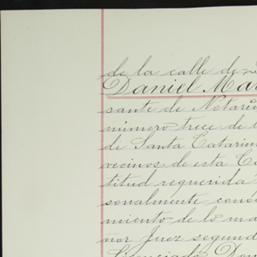 de la calle de
Daniel Mar
sante de Notari
número trece de
de Santa Catarin
vecinos de esta C
titud requerida
sonalmente cono
miento de lo ma
nor Juez segund
Licenciado Don